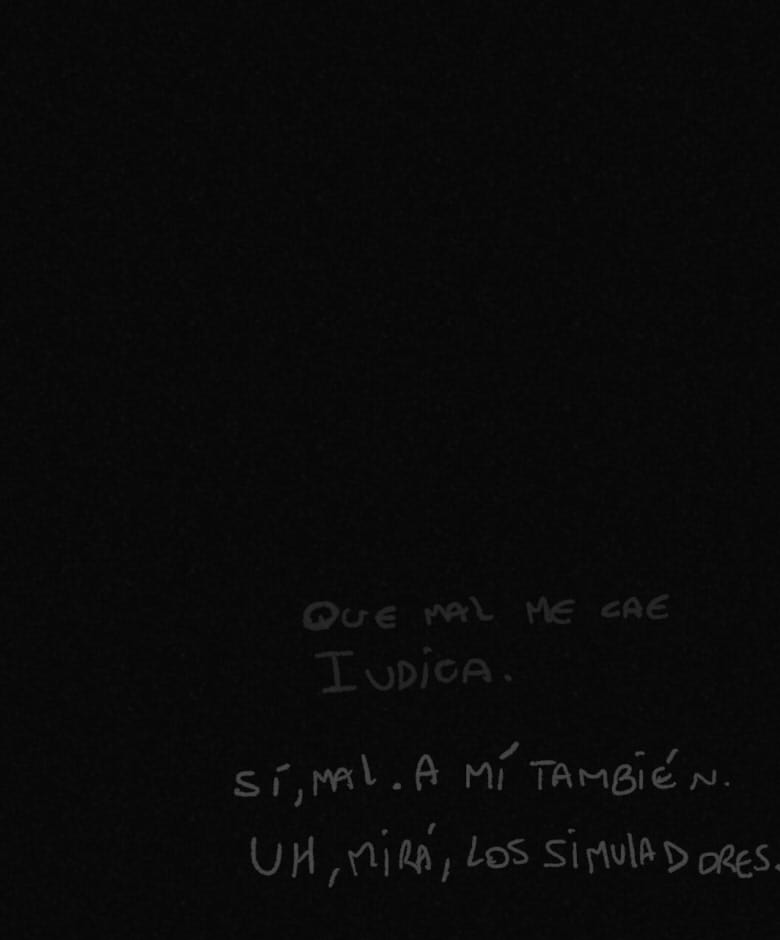 QUE MAL ME CAE
IUDICA.
SÍ, MAL. A MÍ TAMBIÉN.
UH, MIRÁ, LOS SIMULADORES.